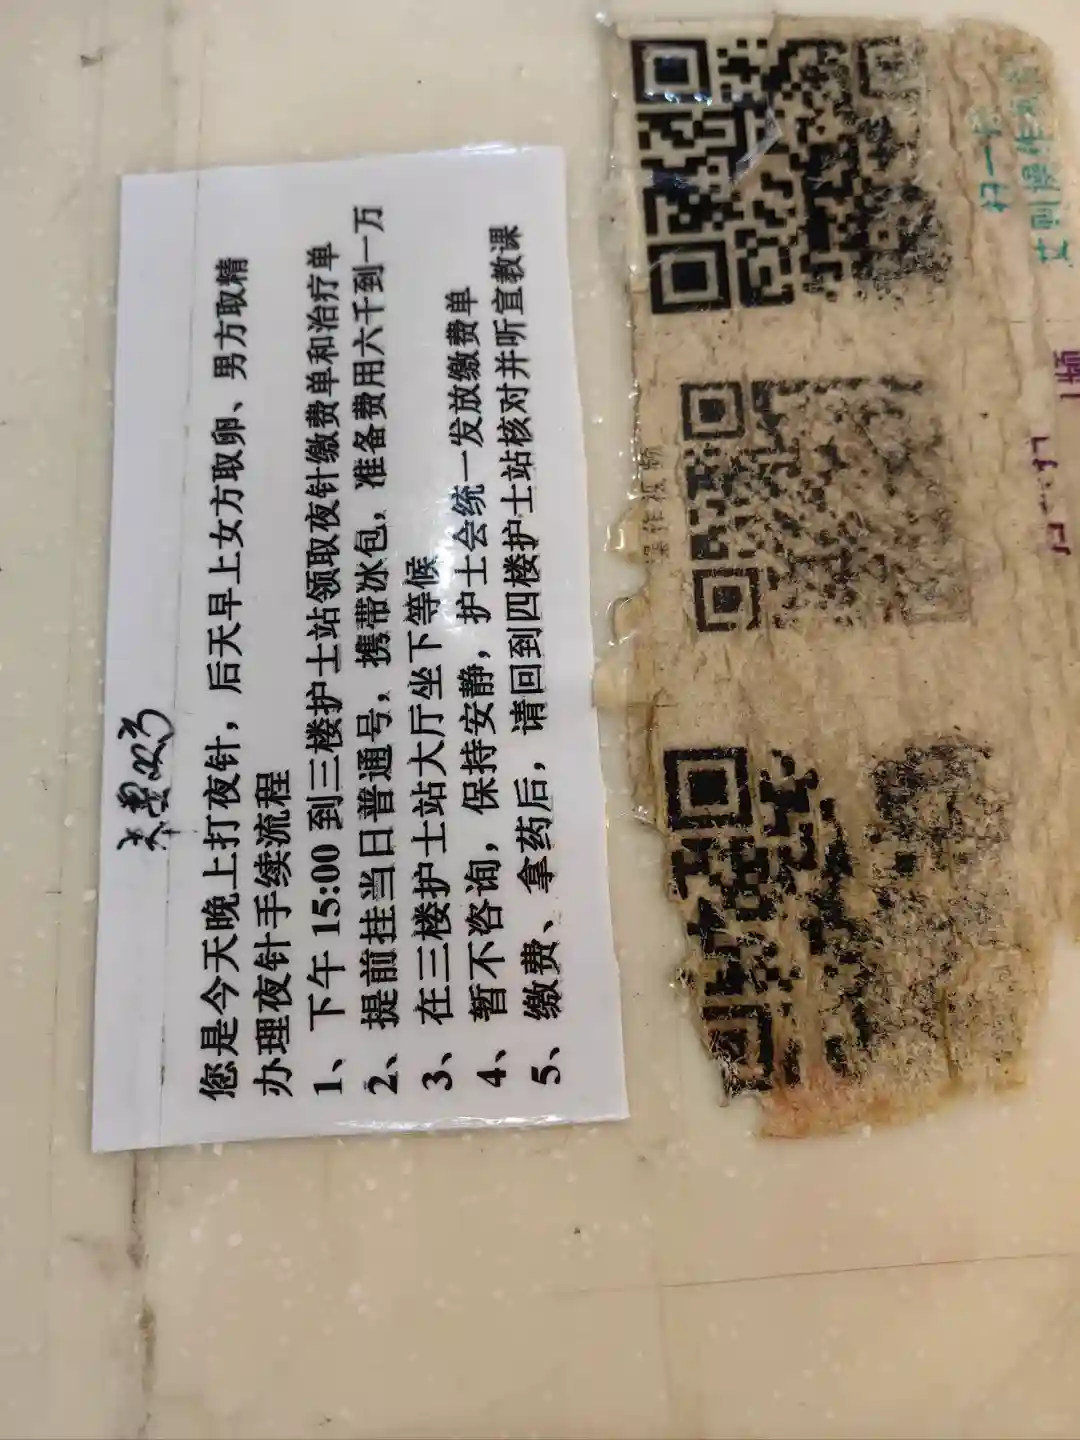 您是今天晚上打夜针，后天早上女方取卵、男方取精
办理夜针手续流程
1、下午 15:00 到三楼护士站领取夜针缴费单和治疗单
2、提前挂当日普通号，携带冰包，准备费用六千到一万
3、在三楼护士站大厅坐下等候
4、暂不咨询，保持安静，护士会统一发放缴费单
5、缴费、拿药后，请回到四楼护士站核对并听宣教课
扫一扫